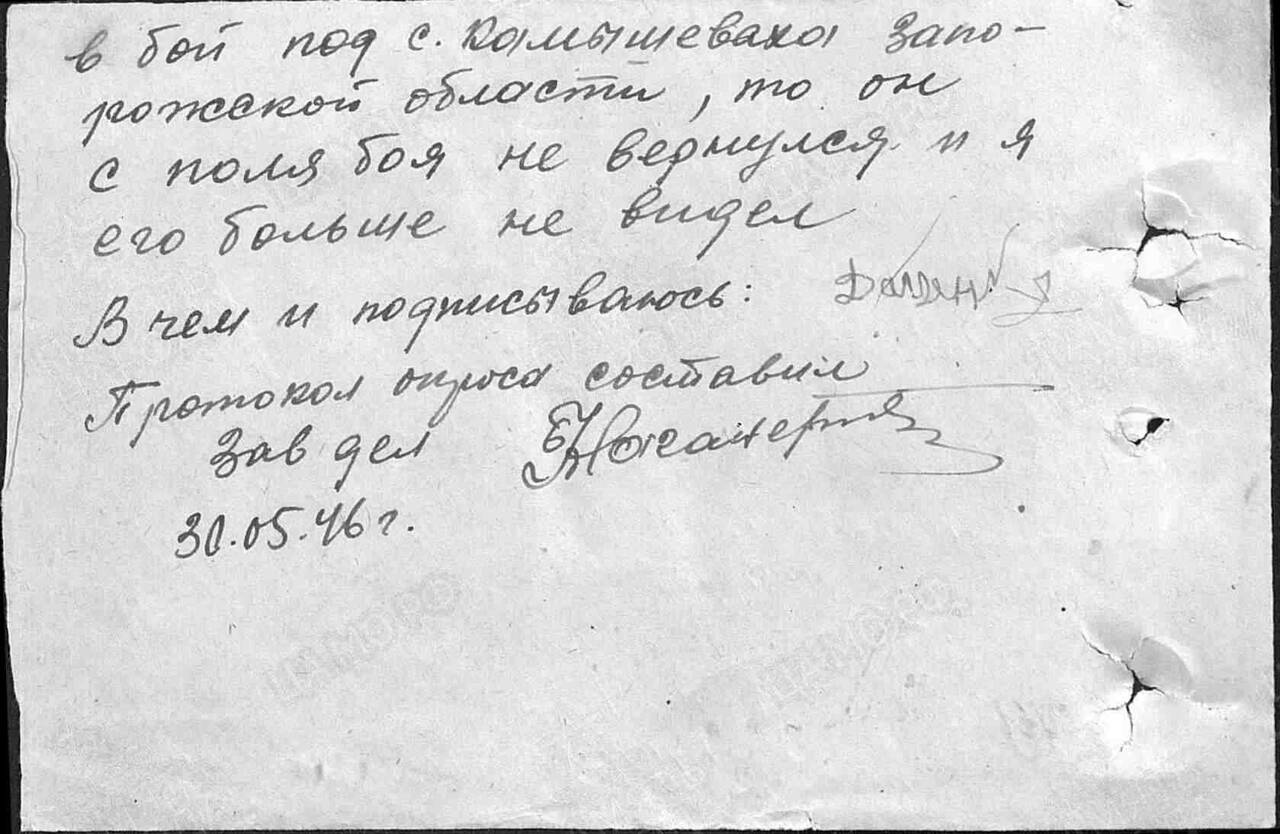 в бой под с. Камышеваха Запо-
рожской области, то он
с поля боя не вернулся и я
его больше не видел
В чем и подписываюсь:
Протокол опроса составил
Зав дел
30.05.46 г.
ЦАМО.РФ
ЦАМО.РФ